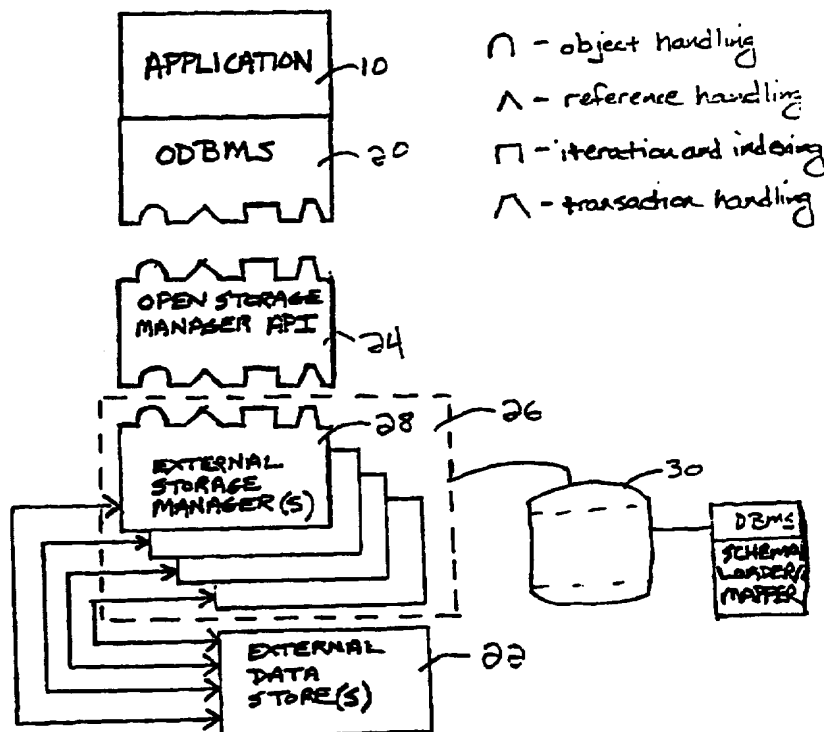 APPLICATION
10
ODBMS
20
∩ - object handling
∧ - reference handling
⊓ - iteration and indexing
/‾\ - transaction handling
OPEN STORAGE
MANAGER API
24
26
28
EXTERNAL
STORAGE
MANAGER(S)
30
DBMS
SCHEMA
LOADER/
MAPPER
EXTERNAL
DATA
STORE(S)
22